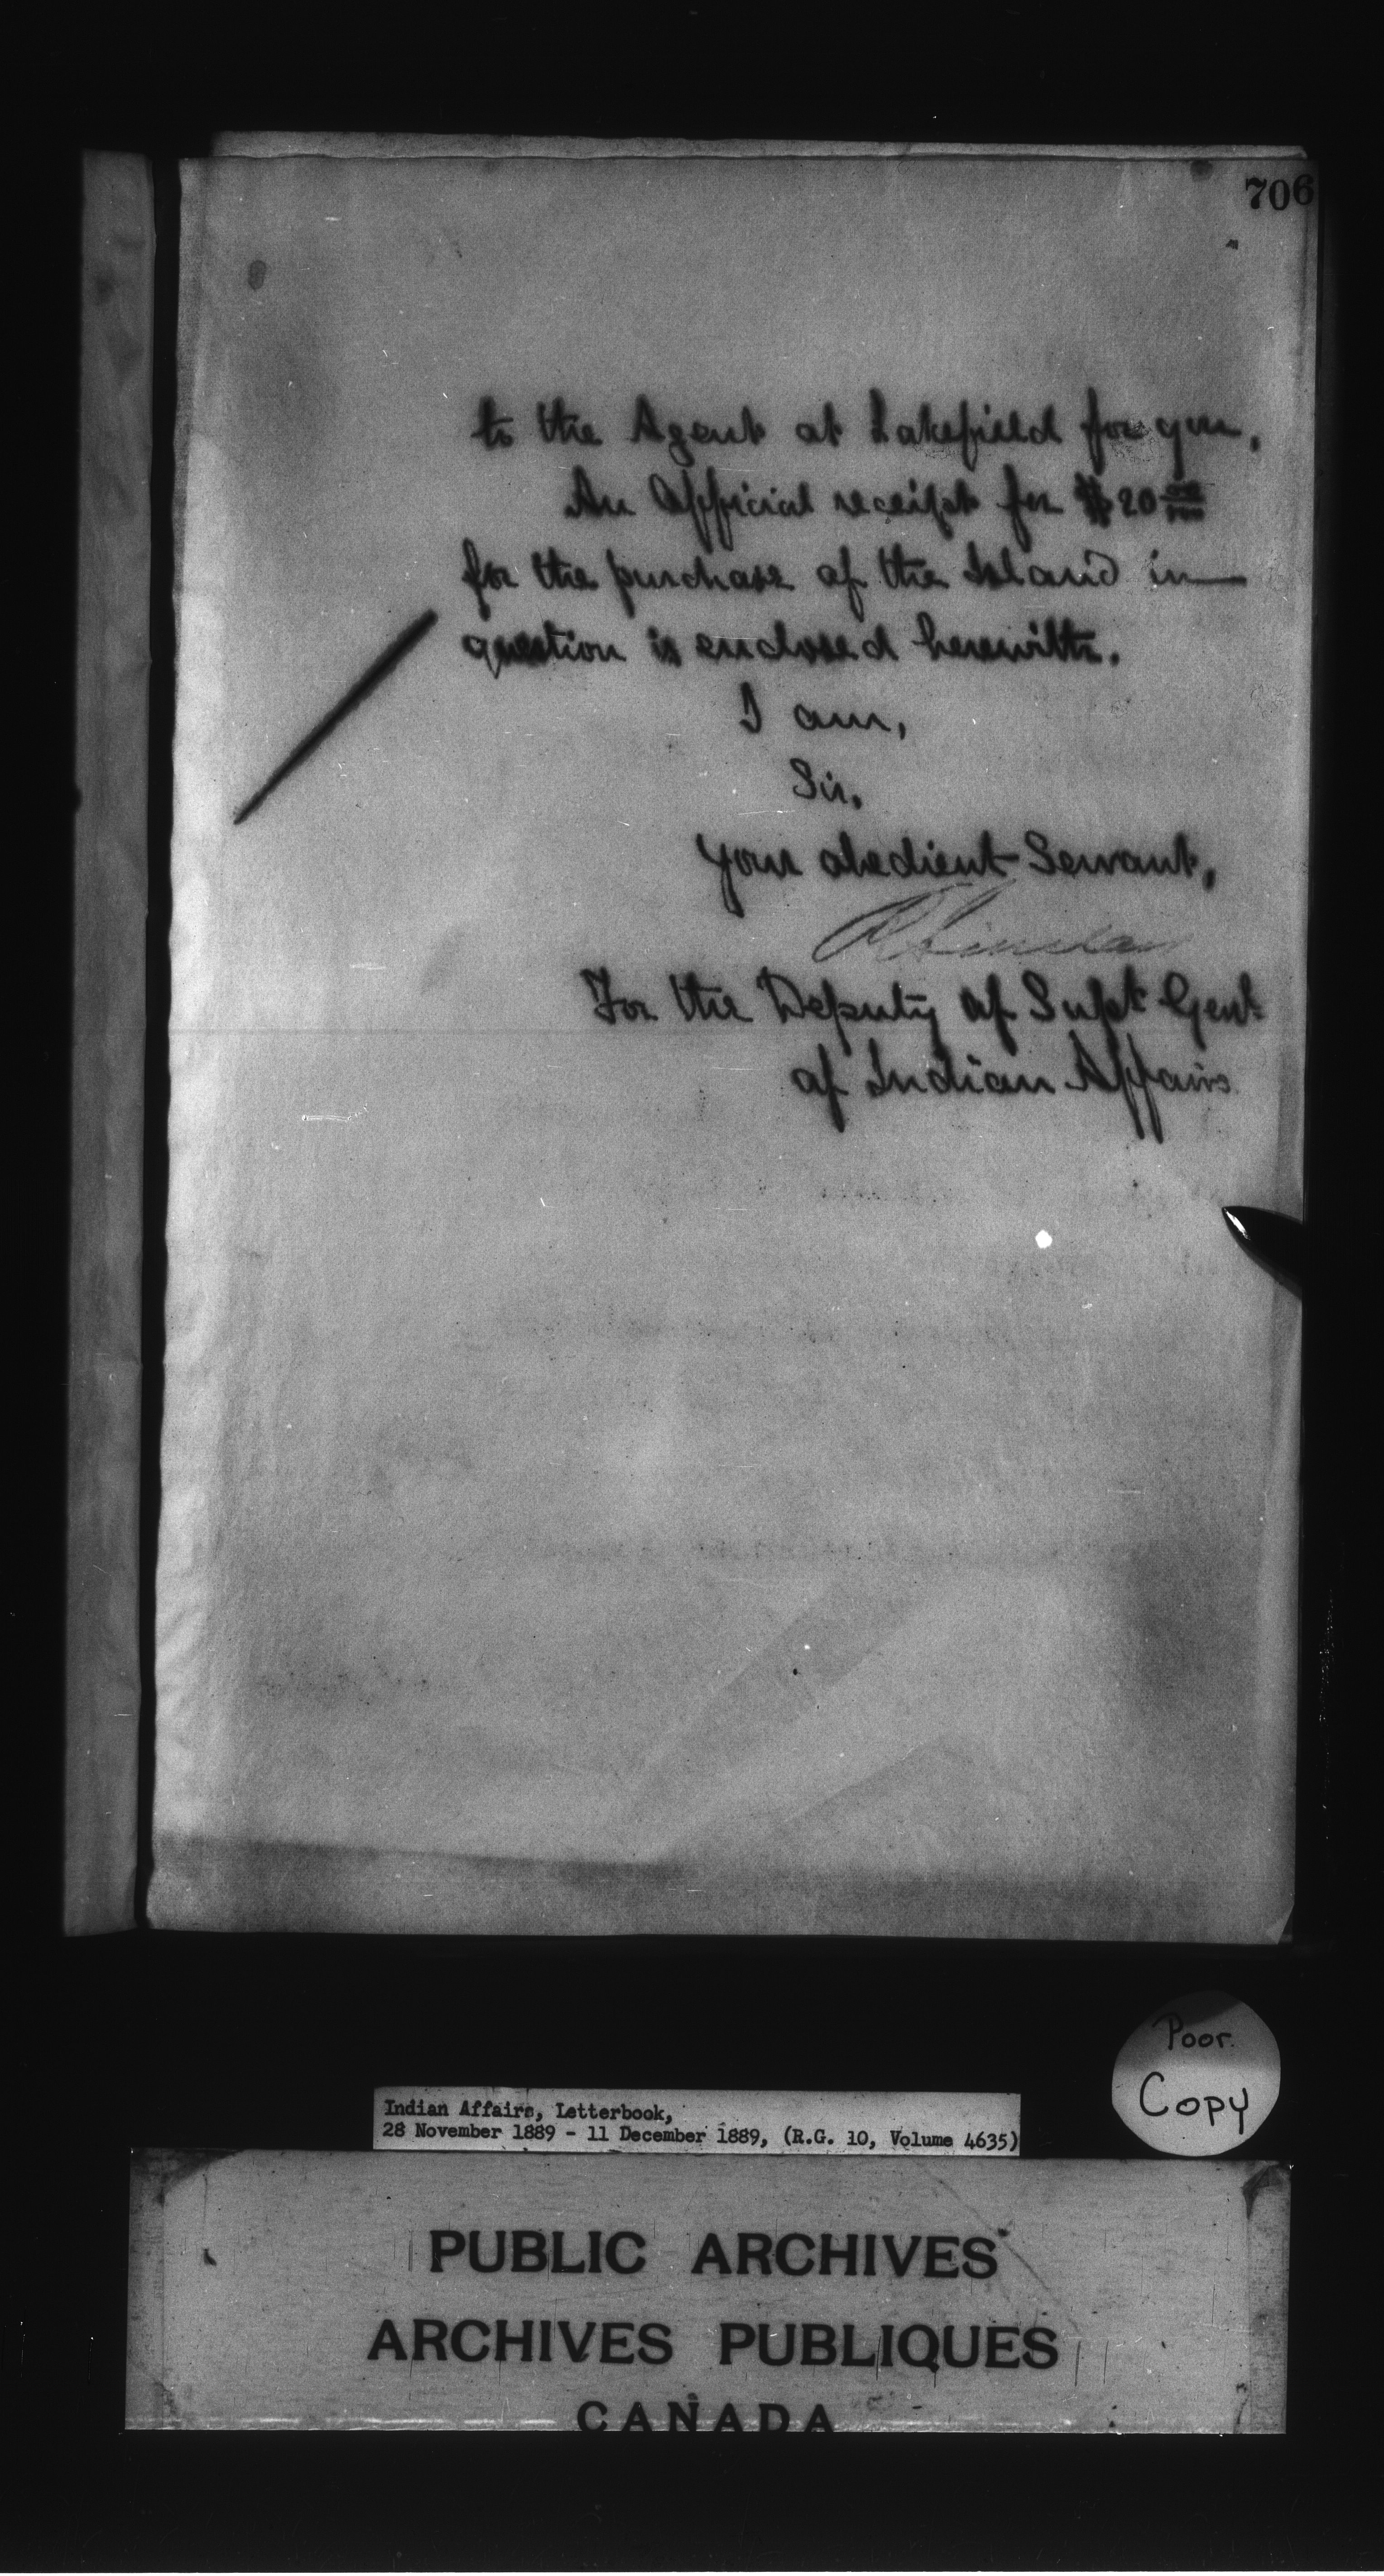 706
to the Agent at Lakefield for you.
An Official receipt for $20 00/100
for the purchase of the Island in
question is enclosed herewith.
I am,
Sir,
Your obedient Servant,
For the Deputy of Supt Genl
of Indian Affairs
Poor
Copy
Indian Affairs, Letterbook,
28 November 1889 - 11 December 1889, (R.G. 10, Volume 4635)
PUBLIC ARCHIVES
ARCHIVES PUBLIQUES
CANADA